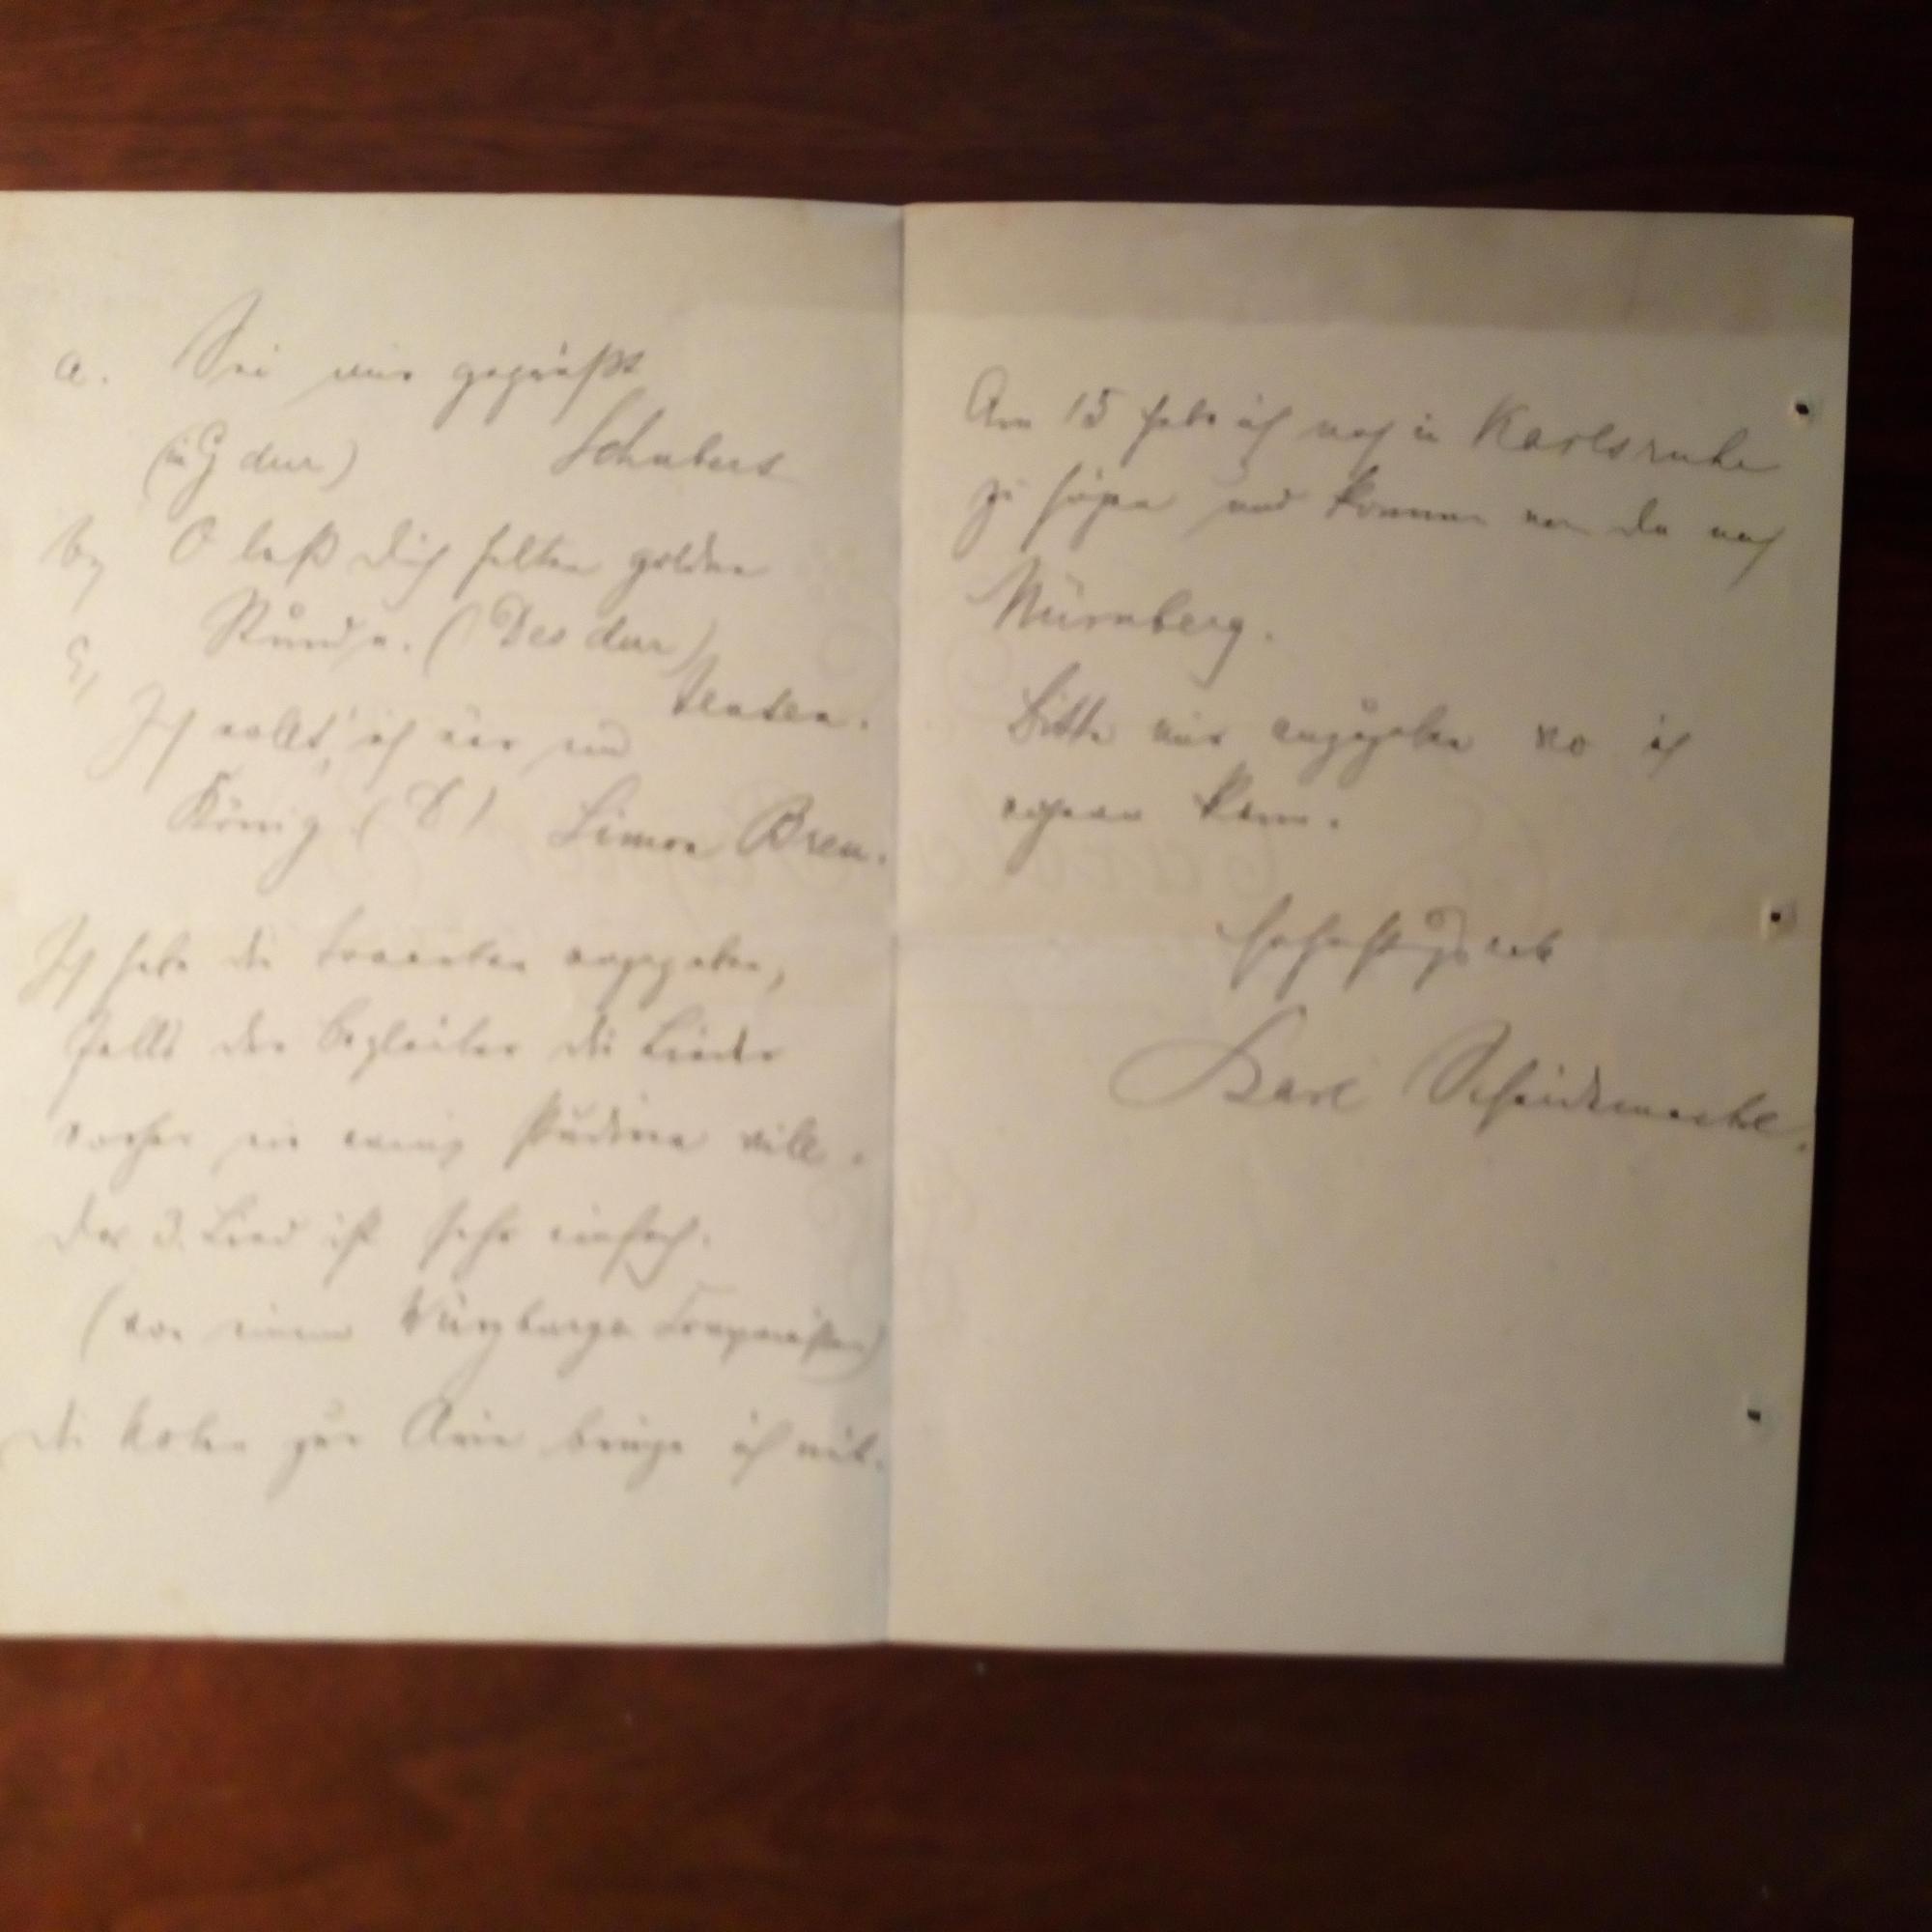 a. Sei mir gegrüßt
(in G dur) Schubert
b, O laß dich halten goldne
Stunde. (Des dur)
Jensen.
c, Ich wollt' ich wär ein
König (D) Simon Breu.
Ich habe die Tonarten angegeben,
falls der Begleiter die Lieder
vorher ein wenig studiren will.
Das 3. Lied ist sehr einfach.
(von einem Würzburger Componisten)
Die Noten zur Arie bringe ich mit.
Am 15 habe ich noch in Karlsruhe
zu singen und komme von da nach
Nürnberg.
Bitte mir anzugeben wo ich
wohnen kann.
Hochachtungsvoll
Karl Scheidemantel.